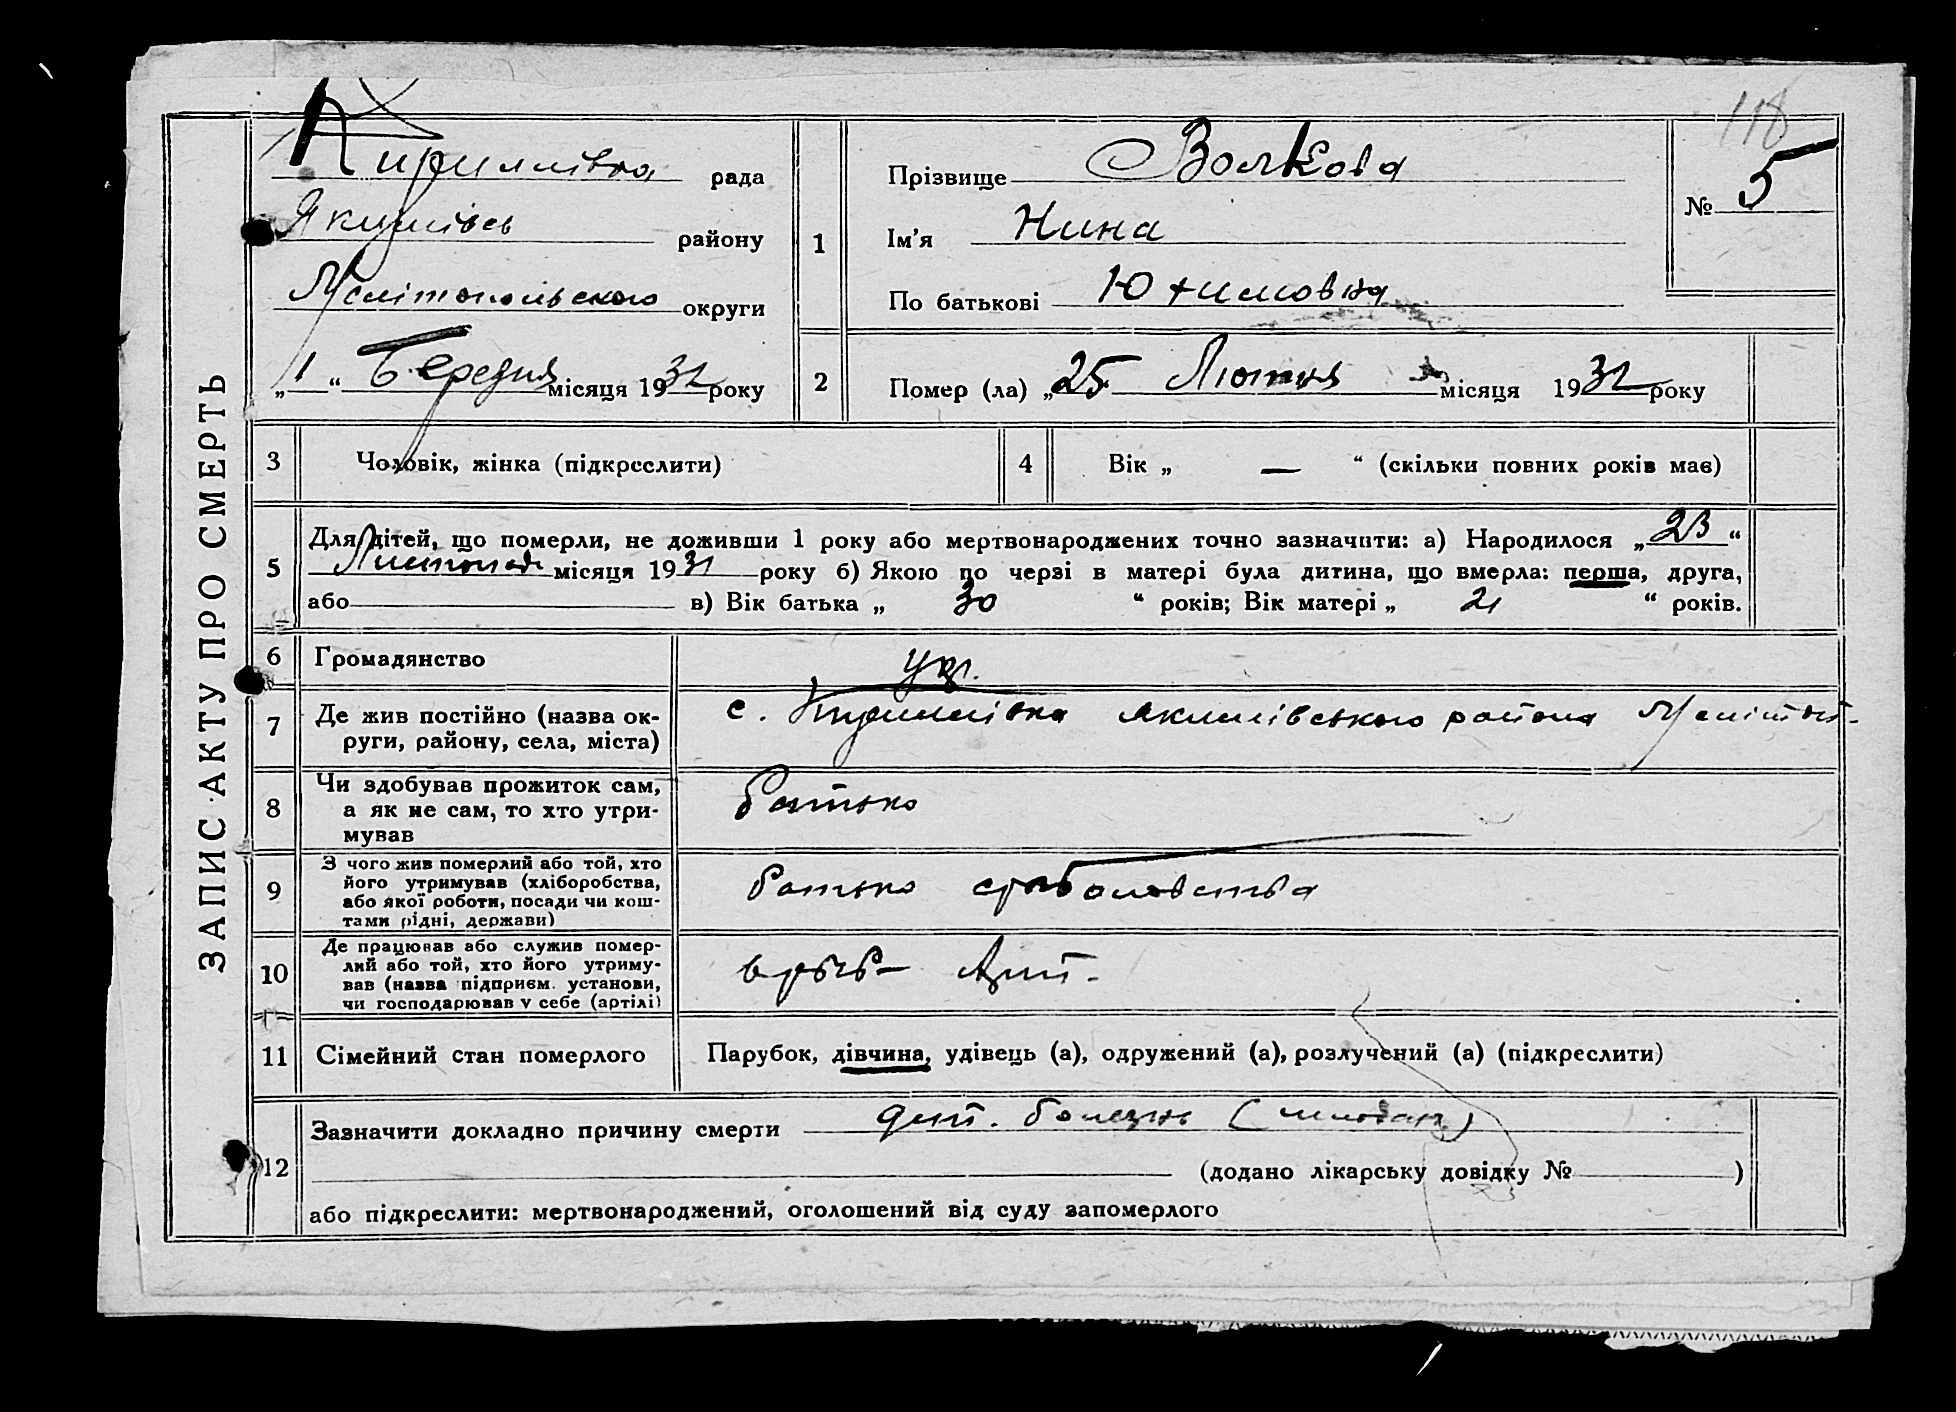 118
ЗАПИС АКТУ ПРО СМЕРТЬ
Кириллівка рада
Якимівсь району
Мелітопольського округи
„1“ Березня місяця 1932 року
1
Прізвище Волкова
Ім'я Нина
По батькові Юхимовна
№ 5
2
Помер (ла) „25 Лютня місяця 1932 року
3 Чоловік, жінка (підкреслити)
4 Вік „ — “ (скільки повних років має)
5 Для дітей, що померли, не доживши 1 року або мертвонароджених точно зазначити: а) Народилося „23“
Листопад місяця 1931 року б) Якою по черзі в матері була дитина, що вмерла: перша, друга,
або в) Вік батька „ 30 “ років; Вік матері „ 21 “ років.
6 Громадянство укр.
7 Де жив постійно (назва ок-
руги, району, села, міста)
с. Кириллівка Якимівського района Меліто
8 Чи здобував прожиток сам,
а як не сам, то хто утри-
мував
батько
9 З чого жив померлий або той, хто
його утримував (хліборобства,
або якої роботи, посади чи кош-
тами рідні, держави)
батько
10 Де працював або служив помер-
лий або той, хто його утриму-
вав (назва підприєм. установи,
чи господарював у себе (артілі)
11 Сімейний стан померлого
Парубок, дівчина, удівець (а), одружений (а), розлучений (а) (підкреслити)
12 Зазначити докладно причину смерти дит. болезнь
(додано лікарську довідку № )
або підкреслити: мертвонароджений, оголошений від суду запомерлого